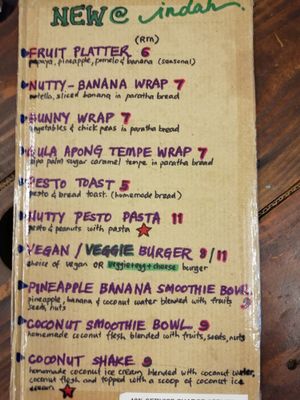 NEW @ indah
(Rm)
FRUIT PLATTER 6
papaya, pineapple, pomelo & banana (seasonal)
NUTTY-BANANA WRAP 7
nutella, sliced banana in paratha bread
HUNNY WRAP 7
vegetables & chick peas in paratha bread
GULA APONG TEMPE WRAP 7
nipa palm sugar caramel tempe in paratha bread
PESTO TOAST 5
pesto & bread toast. (homemade bread)
NUTTY PESTO PASTA 11
pesto & peanuts with pasta
VEGAN / VEGGIE BURGER 9/11
choice of vegan OR veggie+egg+cheese burger
PINEAPPLE BANANA SMOOTHIE BOWL 9
pineapple, banana & coconut water blended with fruits
seeds, nuts
COCONUT SMOOTHIE BOWL 9
homemade coconut flesh blended with fruits, seeds, nuts
COCONUT SHAKE 9
homemade coconut ice cream, blended with coconut water,
coconut flesh and topped with a scoop of coconut ice
cream
10% SERVICE CHARGE